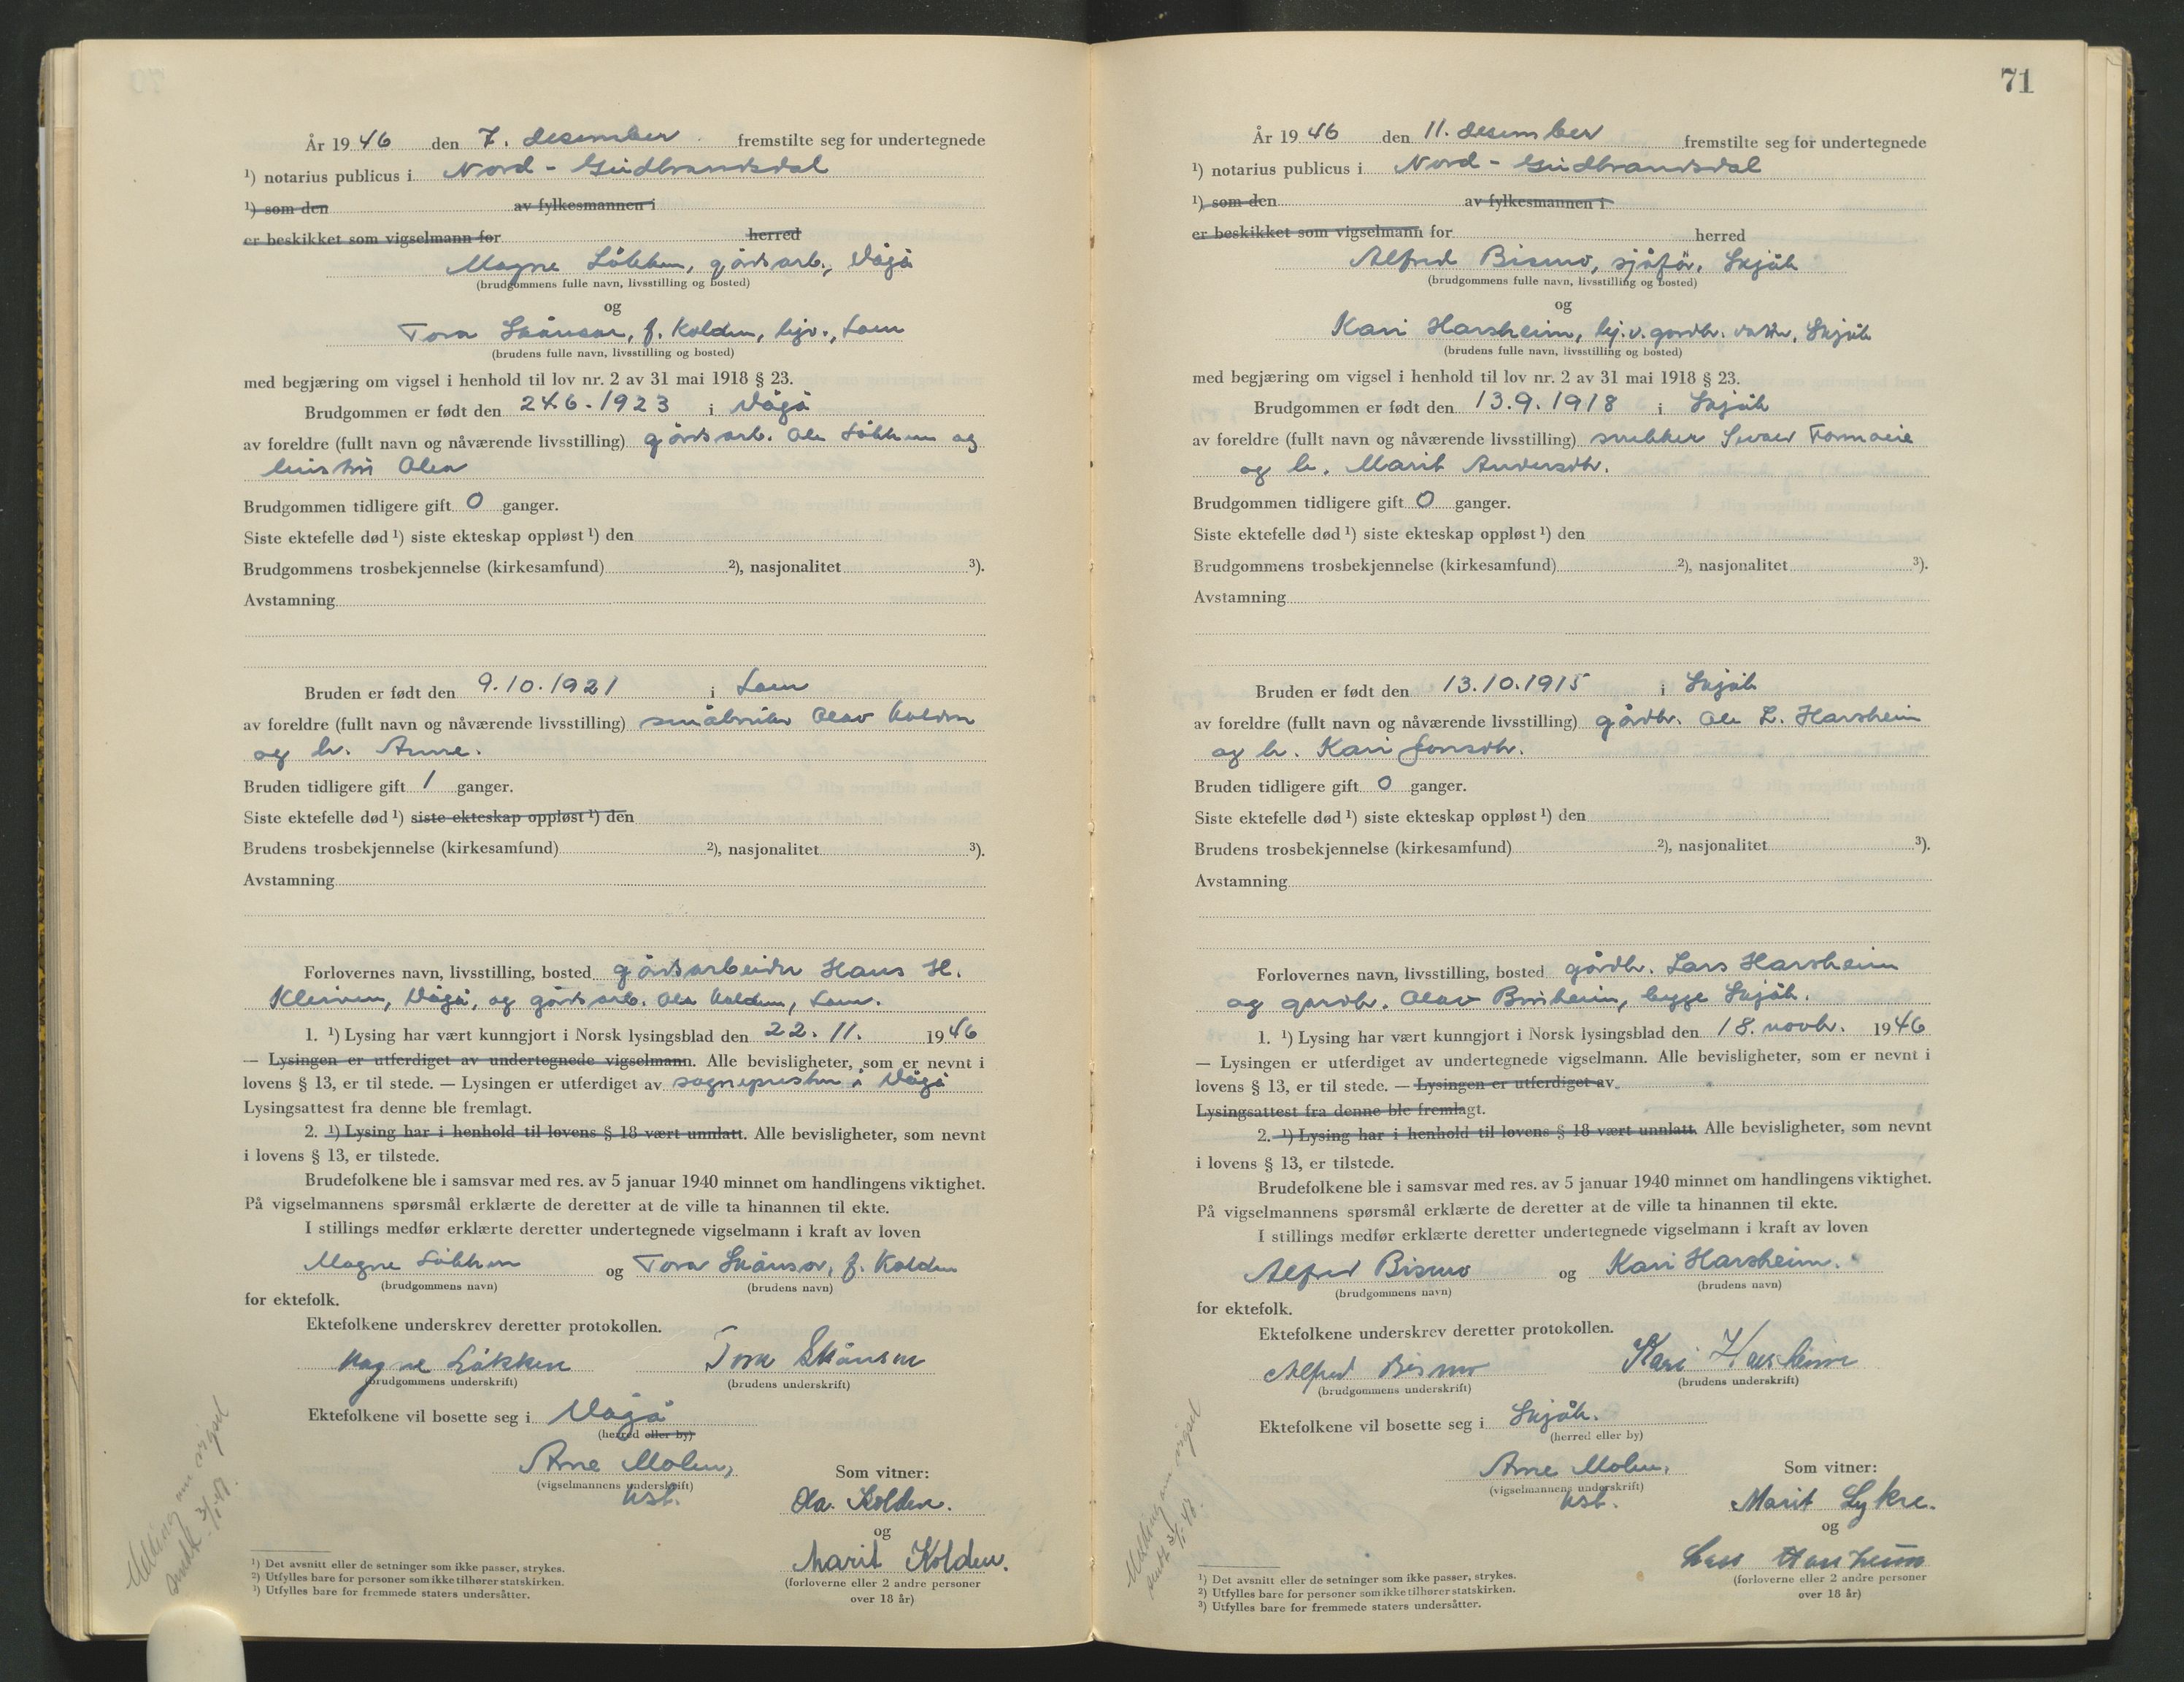 År 19 46 den 7. desember fremstilte seg for undertegnede
¹) notarius publicus i Nord - Gudbrandsdal
¹) som den av fylkesmannen i
er beskikket som vigselmann for herred
Magne Løkken, gårdsarb., Vågå
(brudgommens fulle navn, livsstilling og bosted)
og
Tora Skånsar, f. Kolden, hjv., Lom
(brudens fulle navn, livsstilling og bosted)
med begjæring om vigsel i henhold til lov nr. 2 av 31 mai 1918 § 23.
Brudgommen er født den 24.6.1923 i Vågå
av foreldre (fullt navn og nåværende livsstilling) gårdsarb. Ole Løkken og
hustru Olea
Brudgommen tidligere gift 0 ganger.
Siste ektefelle død ¹) siste ekteskap oppløst ¹) den
Brudgommens trosbekjennelse (kirkesamfund) ²), nasjonalitet ³).
Avstamning
Bruden er født den 9.10.1921 i Lom
av foreldre (fullt navn og nåværende livsstilling) småbruker Olav Kolden
og h. Anne.
Bruden tidligere gift 1 ganger.
Siste ektefelle død ¹) siste ekteskap oppløst ¹) den
Brudens trosbekjennelse (kirkesamfund) ²), nasjonalitet ³).
Avstamning
Forlovernes navn, livsstilling, bosted gårdsarbeider Hans H.
Kleiven, Vågå, og gårdsarb. Ola Kolden, Lom.
1. ¹) Lysing har vært kunngjort i Norsk lysingsblad den 22. 11. 1946
— Lysingen er utferdiget av undertegnede vigselmann. Alle bevisligheter, som er nevnt i
lovens § 13, er til stede. — Lysingen er utferdiget av sognepresten i Vågå
Lysingsattest fra denne ble fremlagt.
2. ¹) Lysing har i henhold til lovens § 18 vært unnlatt. Alle bevisligheter, som nevnt
i lovens § 13, er tilstede.
Brudefolkene ble i samsvar med res. av 5 januar 1940 minnet om handlingens viktighet.
På vigselmannens spørsmål erklærte de deretter at de ville ta hinannen til ekte.
I stillings medfør erklærte deretter undertegnede vigselmann i kraft av loven
Magne Løkken og Tora Skånsar, f. Kolden
(brudgommens navn) (brudens navn)
for ektefolk.
Ektefolkene underskrev deretter protokollen.
Magne Løkken Tora Skånsar
(brudgommens underskrift) (brudens underskrift)
Ektefolkene vil bosette seg i Vågå
(herred eller by)
Arne Molen,
(vigselmannens underskrift)
kst.
Som vitner:
Ola Kolden.
og
Marit Kolden.
(forloverne eller 2 andre personer
over 18 år)
¹) Det avsnitt eller de setninger som ikke passer, strykes.
²) Utfylles bare for personer som ikke tilhører statskirken.
³) Utfylles bare for fremmede staters undersåtter.
Melding om vigsel
sendt 3/1-47.
71
År 19 46 den 11. desember fremstilte seg for undertegnede
¹) notarius publicus i Nord - Gudbrandsdal
¹) som den av fylkesmannen i
er beskikket som vigselmann for herred
Alfred Bismo, sjåfør, Skjåk
(brudgommens fulle navn, livsstilling og bosted)
og
Kari Harsheim, hj.v. gardbr. datter, Skjåk
(brudens fulle navn, livsstilling og bosted)
med begjæring om vigsel i henhold til lov nr. 2 av 31 mai 1918 § 23.
Brudgommen er født den 13.9.1918 i Skjåk
av foreldre (fullt navn og nåværende livsstilling) snekker
og h. Marit Andersdtr.
Brudgommen tidligere gift 0 ganger.
Siste ektefelle død ¹) siste ekteskap oppløst ¹) den
Brudgommens trosbekjennelse (kirkesamfund) ²), nasjonalitet ³).
Avstamning
Bruden er født den 13.10.1915 i Skjåk
av foreldre (fullt navn og nåværende livsstilling) gårdbr. Ole L. Harsheim
og h. Kari Jonsdtr.
Bruden tidligere gift 0 ganger.
Siste ektefelle død ¹) siste ekteskap oppløst ¹) den
Brudens trosbekjennelse (kirkesamfund) ²), nasjonalitet ³).
Avstamning
Forlovernes navn, livsstilling, bosted gårdbr. Lars Harsheim
og gardbr. Olav, begge Skjåk.
1. ¹) Lysing har vært kunngjort i Norsk lysingsblad den 18. novbr. 1946
— Lysingen er utferdiget av undertegnede vigselmann. Alle bevisligheter, som er nevnt i
lovens § 13, er til stede. — Lysingen er utferdiget av
Lysingsattest fra denne ble fremlagt.
2. ¹) Lysing har i henhold til lovens § 18 vært unnlatt. Alle bevisligheter, som nevnt
i lovens § 13, er tilstede.
Brudefolkene ble i samsvar med res. av 5 januar 1940 minnet om handlingens viktighet.
På vigselmannens spørsmål erklærte de deretter at de ville ta hinannen til ekte.
I stillings medfør erklærte deretter undertegnede vigselmann i kraft av loven
Alfred Bismo og Kari Harsheim.
(brudgommens navn) (brudens navn)
for ektefolk.
Ektefolkene underskrev deretter protokollen.
Alfred Bismo Kari Harsheim
(brudgommens underskrift) (brudens underskrift)
Ektefolkene vil bosette seg i Skjåk.
(herred eller by)
Arne Molen,
(vigselmannens underskrift)
kst.
Som vitner:
Marit Lykre.
og
Lars Harsheim
(forloverne eller 2 andre personer
over 18 år)
¹) Det avsnitt eller de setninger som ikke passer, strykes.
²) Utfylles bare for personer som ikke tilhører statskirken.
³) Utfylles bare for fremmede staters undersåtter.
Melding om vigsel
sendt 3/1-47.